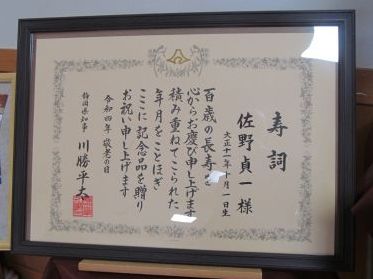 寿詞
佐野貞一様
大正十一年十月一日生
百歳の長寿を
心からお慶び申し上げます
積み重ねてこられた
年月をことほぎ
ここに記念品を贈り
お祝い申し上げます
令和四年 敬老の日
静岡県知事 川勝平太